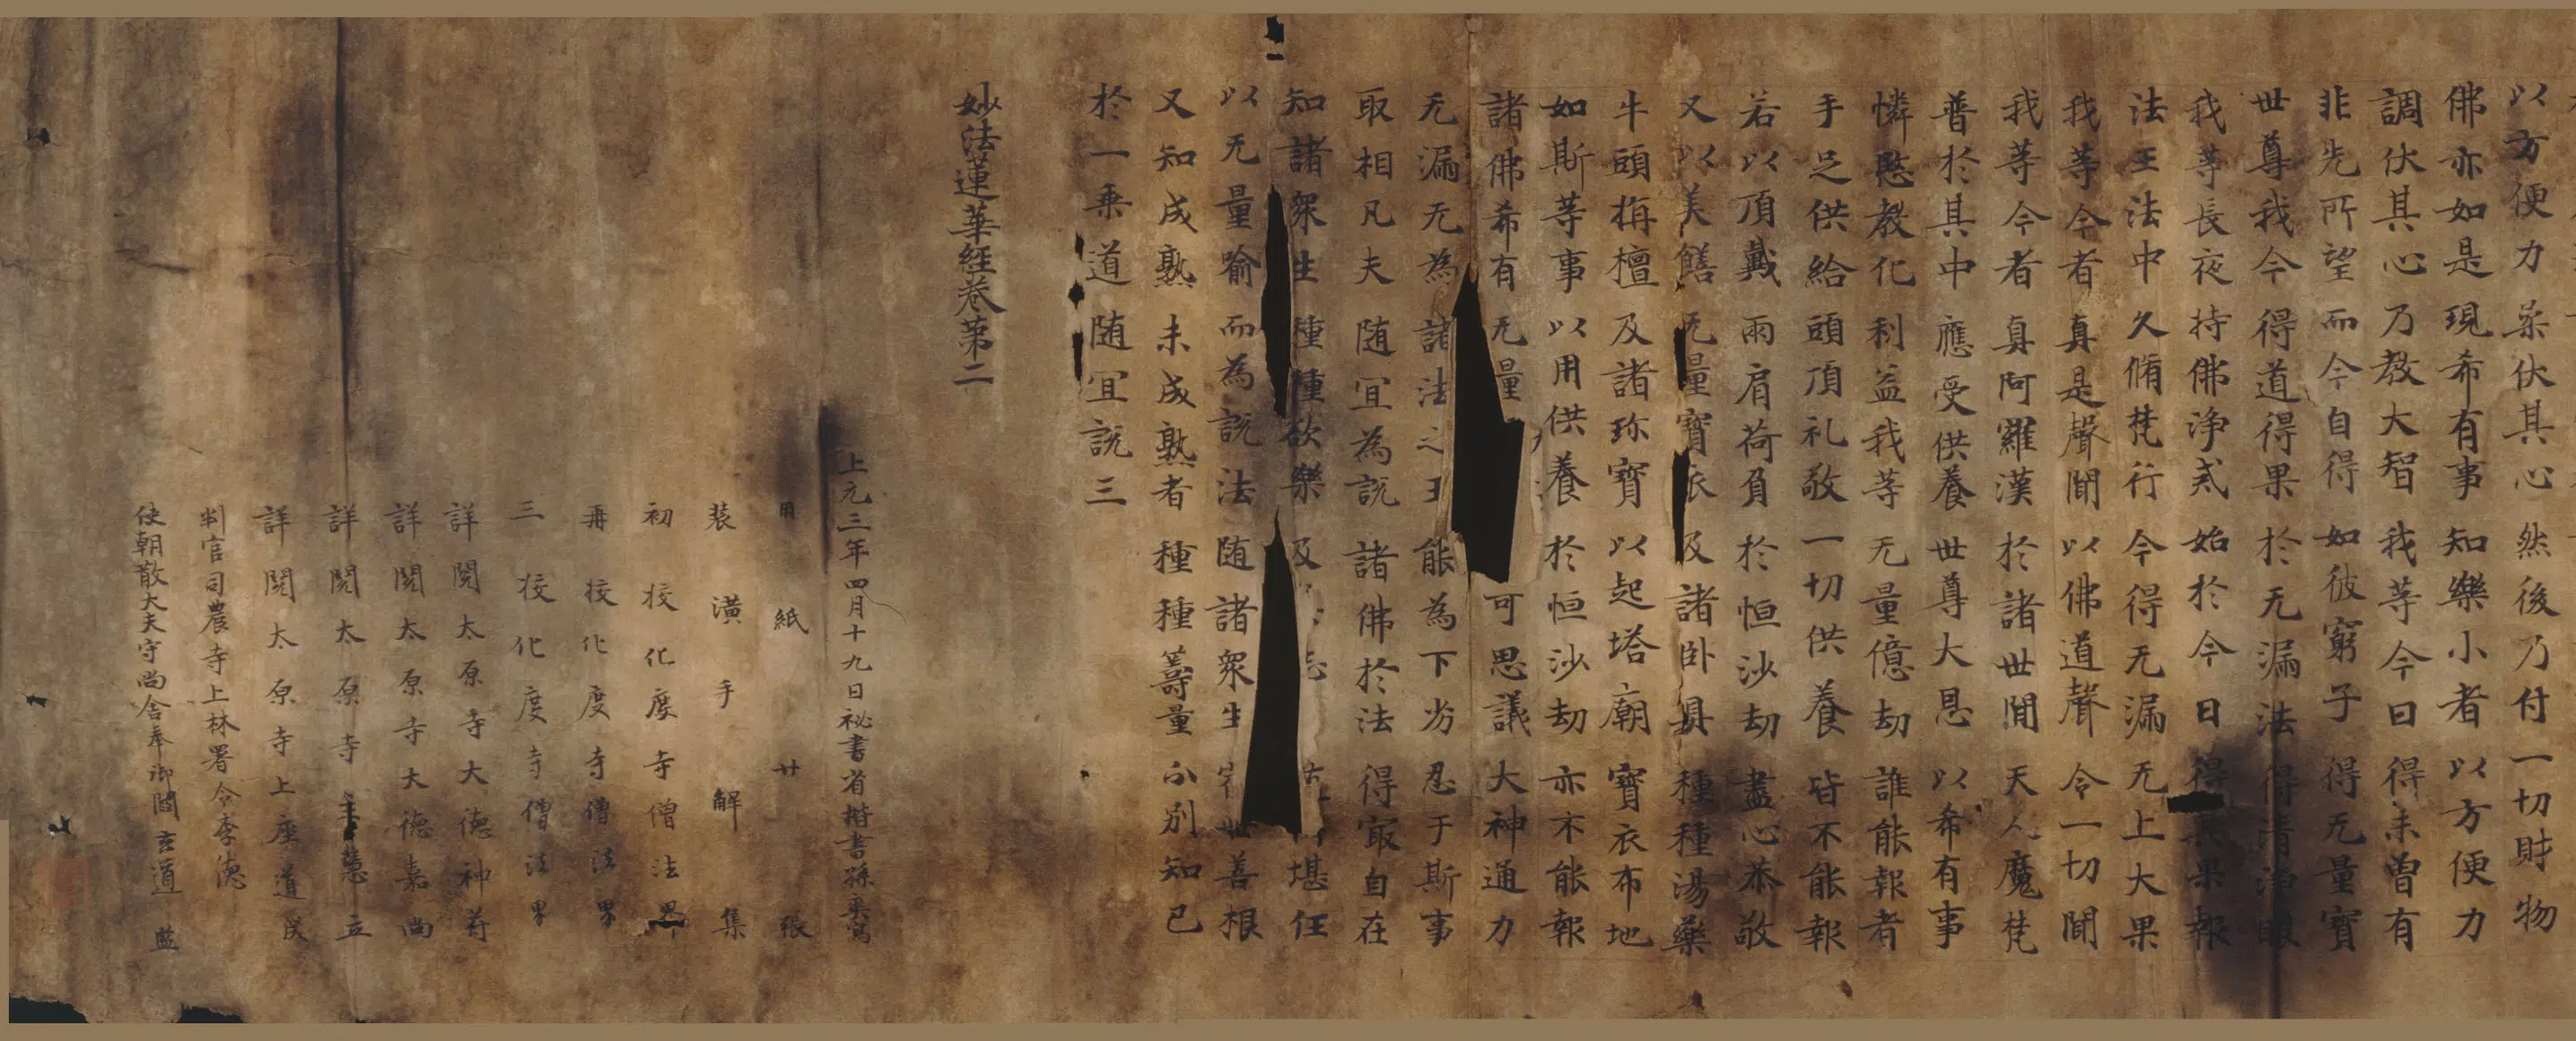 以方便力柔伏其心然後乃付一切財物
佛亦如是現希有事知樂小者以方便力
調伏其心乃教大智我等今日得未曾有
非先所望而今自得如彼窮子得无量寶
世尊我今得道得果於无漏法得清淨眼
我等長夜持佛淨戒始於今日得其果報
法王法中久脩梵行今得无漏无上大果
我等今者真是聲聞以佛道聲令一切聞
我等今者真阿羅漢於諸世間天人魔梵
普於其中應受供養世尊大恩以希有事
憐愍教化利益我等无量億劫誰能報者
手足供給頭頂礼敬一切供養皆不能報
若以頂戴兩肩荷負於恒沙劫盡心恭敬
又以美饍无量寶衣及諸卧具種種湯藥
牛頭栴檀及諸珎寶以起塔廟寶衣布地
如斯等事以用供養於恒沙劫亦不能報
諸佛希有无量可思議大神通力
无漏无為諸法之王能為下劣忍于斯事
取相凡夫随宜為說諸佛於法得冣自在
知諸衆生種種欲樂及志堪任
以无量喻而為說法随諸衆生宿世善根
又知成熟未成熟者種種籌量分別知已
於一乘道随宜說三
妙法蓮華經卷第二
上元三年四月十九日祕書省楷書孫玄爽寫
用紙廿張
装潢手解集
初挍化度寺僧法界
再挍化度寺僧法界
三挍化度寺僧法界
詳閱太原寺大德神苻
詳閱太原寺大德嘉尚
詳閱太原寺主慧立
詳閱太原寺上座道成
判官司農寺上林署令李德
使朝散大夫守尚舍奉御閻玄道監